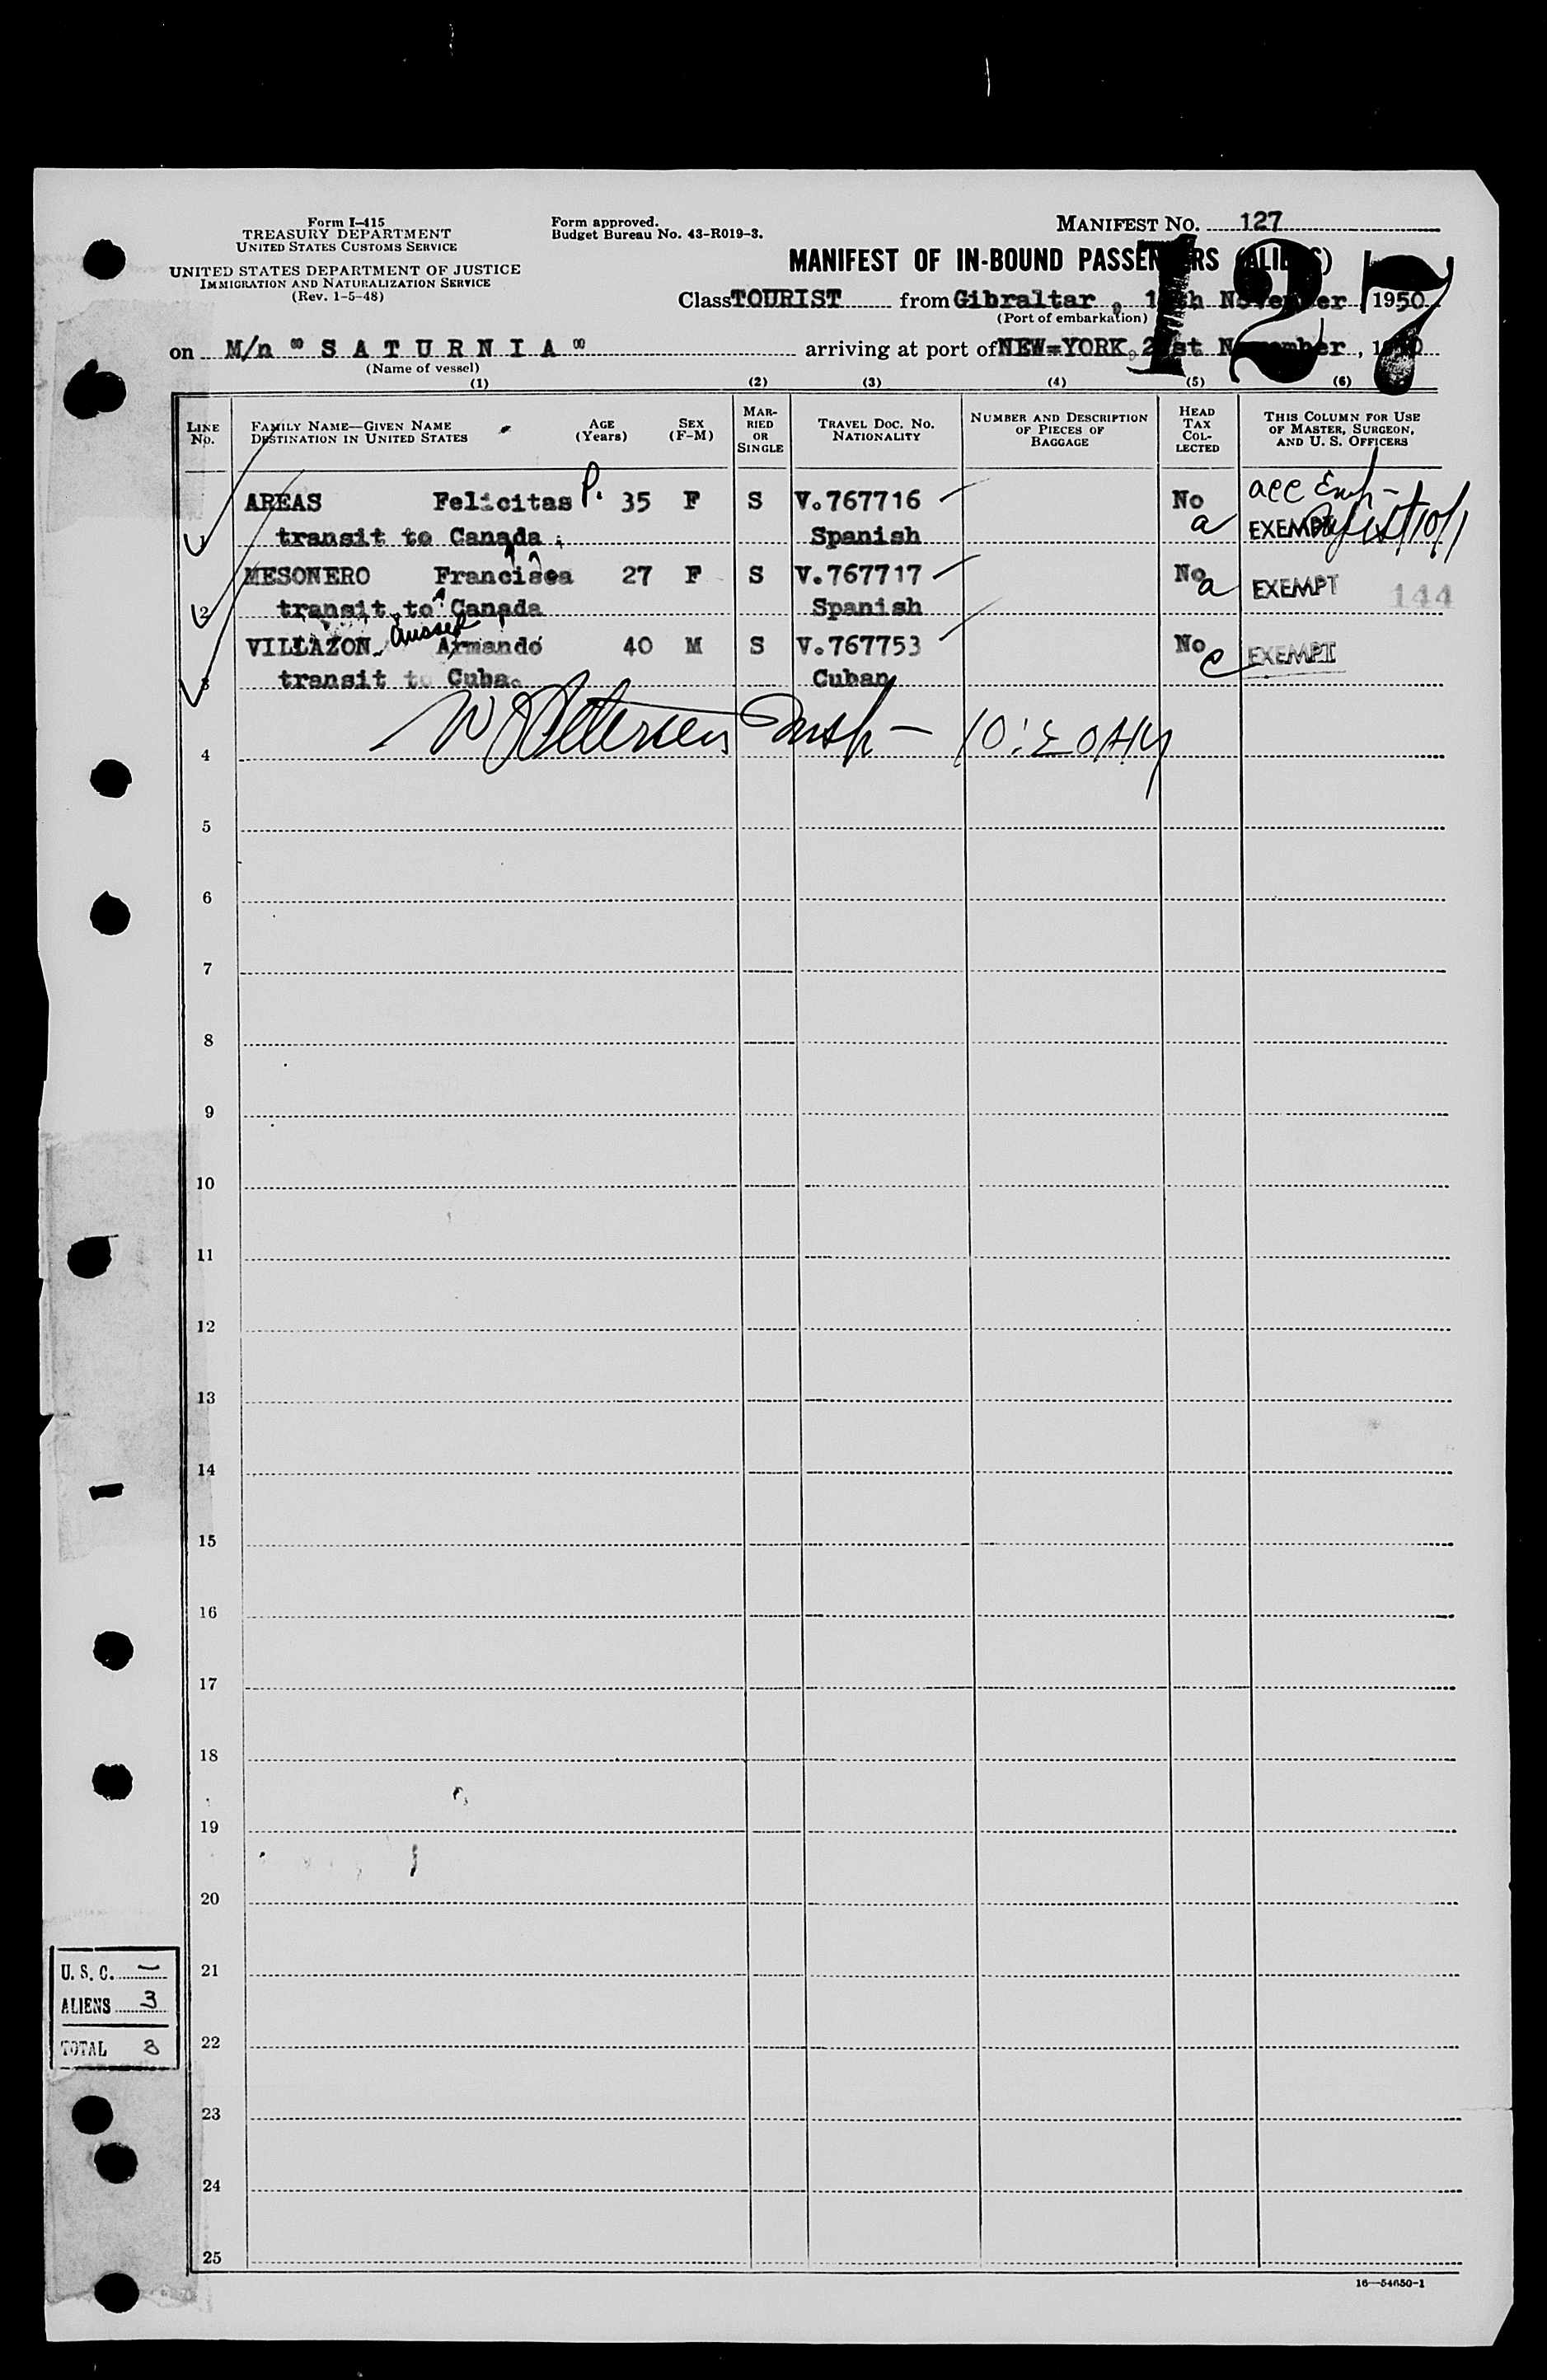 Form I-415
TREASURY DEPARTMENT
UNITED STATES CUSTOMS SERVICE
UNITED STATES DEPARTMENT OF JUSTICE
IMMIGRATION AND NATURALIZATION SERVICE
(Rev. 1-5-48)
Form approved.
Budget Bureau No. 43-R019-3.
MANIFEST NO. 127
127
MANIFEST OF IN-BOUND PASSENGERS (ALIENS)
Class TOURIST from Gibraltar, November, 1950
(Port of embarkation)
on M/n "SATURNIA" arriving at port of NEW=YORK, 21st November, 1950
(Name of vessel)
(1) (2) (3) (4) (5) (6)
LINE NO. FAMILY NAME—GIVEN NAME DESTINATION IN UNITED STATES AGE (Years) SEX (F-M) MARRIED OR SINGLE TRAVEL DOC. NO. NATIONALITY NUMBER AND DESCRIPTION OF PIECES OF BAGGAGE HEAD TAX COLLECTED THIS COLUMN FOR USE OF MASTER, SURGEON, AND U. S. OFFICERS
AREAS Felicitas P. 35 F S V.767716 No
1 transit to Canada Spanish a EXEMPT
MESONERO Francisca 27 F S V.767717 No a EXEMPT 144
2 transit to Canada Spanish
VILLAZON Armando 40 M S V.767753 No EXEMPT
3 transit to Cuba. Cuban
4
5
6
7
8
9
10
11
12
13
14
15
16
17
18
19
20
21
22
23
24
25
U. S. C. —
ALIENS 3
TOTAL 3
16—54650-1